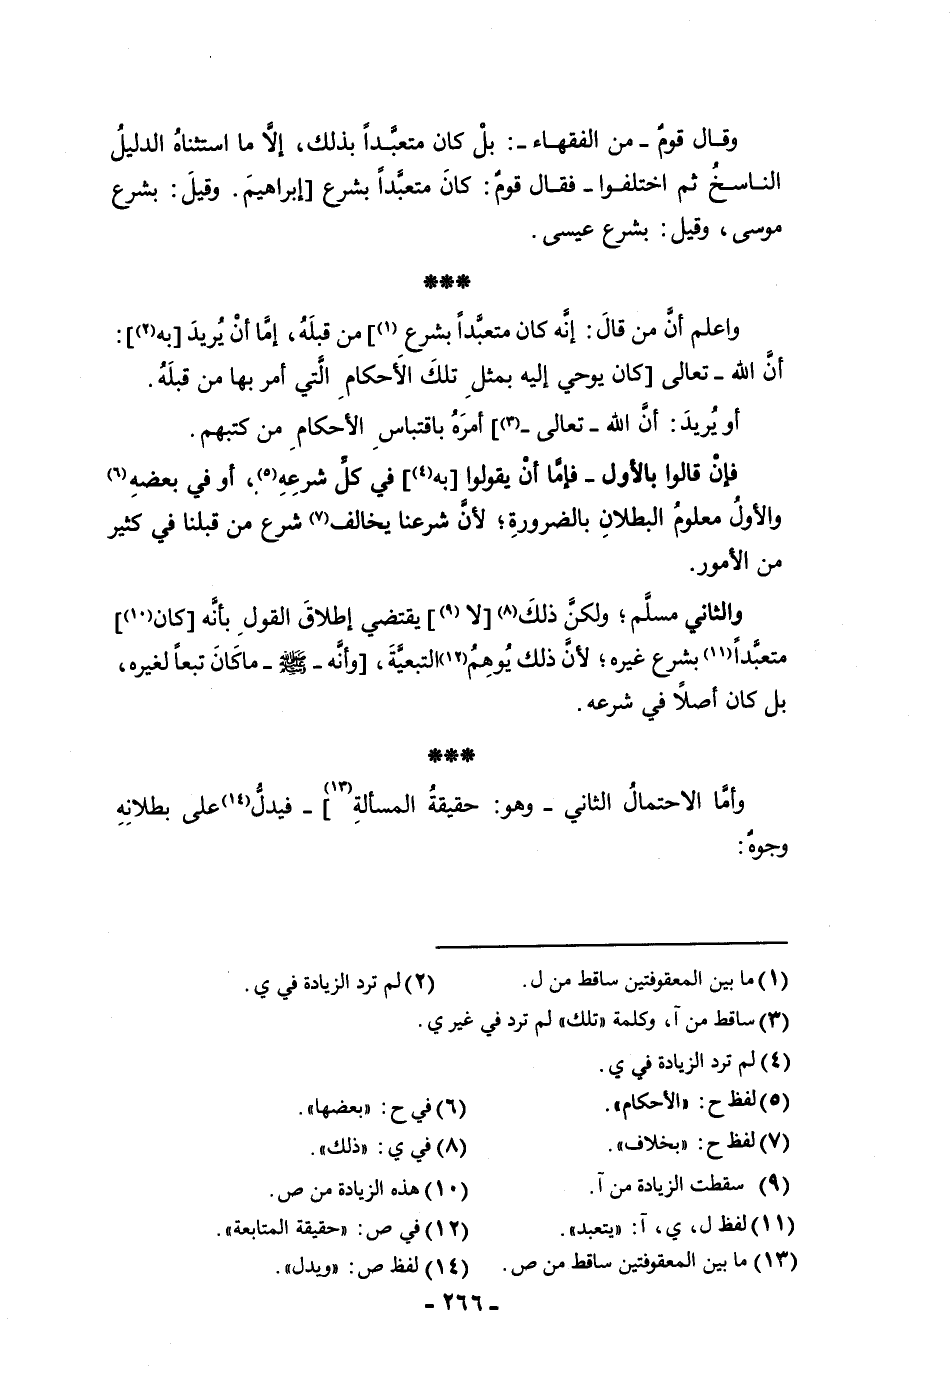 وقال قومٌ ـ من الفقهاء ـ: بلْ كان متعبَّداً بذلك، إلَّا ما استثناهُ الدليلُ
الناسخُ ثم اختلفوا ـ فقال قومٌ: كانَ متعبَّداً بشرع [إبراهيمَ. وقيلَ: بشرع
موسى، وقيل: بشرع عيسى.
***
واعلم أنَّ من قالَ: إنَّه كان متعبَّداً بشرع (١)] من قبلَهُ، إمَّا أنْ يُريدَ [به(٢)]:
أنَّ الله ـ تعالى [كان يوحي إليه بمثلِ تلكَ الأحكامِ الَّتي أمر بها من قبلَهُ.
أو يُريدَ: أنَّ الله ـ تعالى ـ(٣)] أمرَهُ باقتباسِ الأحكامِ من كتبهم.
فإنْ قالوا بالأول ـ فإمَّا أنْ يقولوا [به(٤)] في كلِّ شرعِهِ(٥)، أو في بعضهِ(٦)
والأولُ معلومُ البطلانِ بالضرورةِ؛ لأنَّ شرعنا يخالف(٧) شرع من قبلنا في كثير
من الأمور.
والثاني مسلَّم؛ ولكنَّ ذلكَ(٨) [لا (٩)] يقتضي إطلاقَ القولِ بأنَّه [كان(١٠)]
متعبَّداً(١١) بشرع غيره؛ لأنَّ ذلك يُوهِمُ(١٢)التبعيَّةَ، [وأنَّه ـ ﷺ ـ ماكانَ تبعاً لغيره،
بل كان أصلًا في شرعه.
***
وأمَّا الاحتمالُ الثاني ـ وهو: حقيقةُ المسألةِ(١٣)] ـ فيدلُّ(١٤)على بطلانِهِ
وجوهٌ:
(١) ما بين المعقوفتين ساقط من ل. (٢) لم ترد الزيادة في ي.
(٣) ساقط من آ، وكلمة «تلك» لم ترد في غير ي.
(٤) لم ترد الزيادة في ي.
(٥) لفظ ح: «الأحكام». (٦) في ح: «بعضها».
(٧) لفظ ح: «بخلاف». (٨) في ي: «ذلك».
(٩) سقطت الزيادة من آ. (١٠) هذه الزيادة من ص.
(١١) لفظ ل، ي، آ: «يتعبد». (١٢) في ص: «حقيقة المتابعة».
(١٣) ما بين المعقوفتين ساقط من ص. (١٤) لفظ ص: «ويدل».
ـ ٢٦٦ ـ